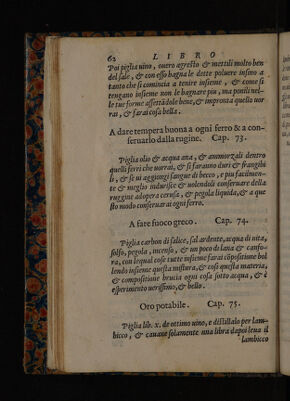 62 LIBRO
Poi piglia uino, ouero agresto & mettili molto ben
del sale, & con esso bagna le dette poluere insino a
tanto che si comincia a tenire insieme, & come si
tengano insieme non le bagnare piu, ma ponili nel-
le tue forme assettādole bene, & impronta quello uor
rai, & farai cosa bella.
A dare tempera buona a ogni ferro & a con-
seruarlo dalla rugine. Cap. 73.
Piglia olio & acqua ana, & ammorzali dentro
quelli ferri che uorrai, & si faranno duri & frangibi
li, & se ui aggiongi sangue di becco, e piu facilmen-
te & meglio indurisce & uolendoli conseruare della
ruggine adopera cerusa, & pegola liquida, & a que
sto modo conseruarai ogni ferro.
A fare fuoco greco. Cap. 74.
Piglia carbon di salice, sal ardente, acqua di uita,
solfo, pegola, incenso, & un poco di lana & canfo-
ra, con lequal cose tutte insieme farai cōpositione bol
lendo insieme questa mistura, & cosi questa materia,
& compositione brucia ogni cosa sotto acqua, & è
esperimento uerissimo, & bello.
Oro potabile. Cap. 75.
Piglia lib. x. de ottimo uino, e distillalo per lam-
bicco, & cauane solamente una libra dapoi leua il
lambicco